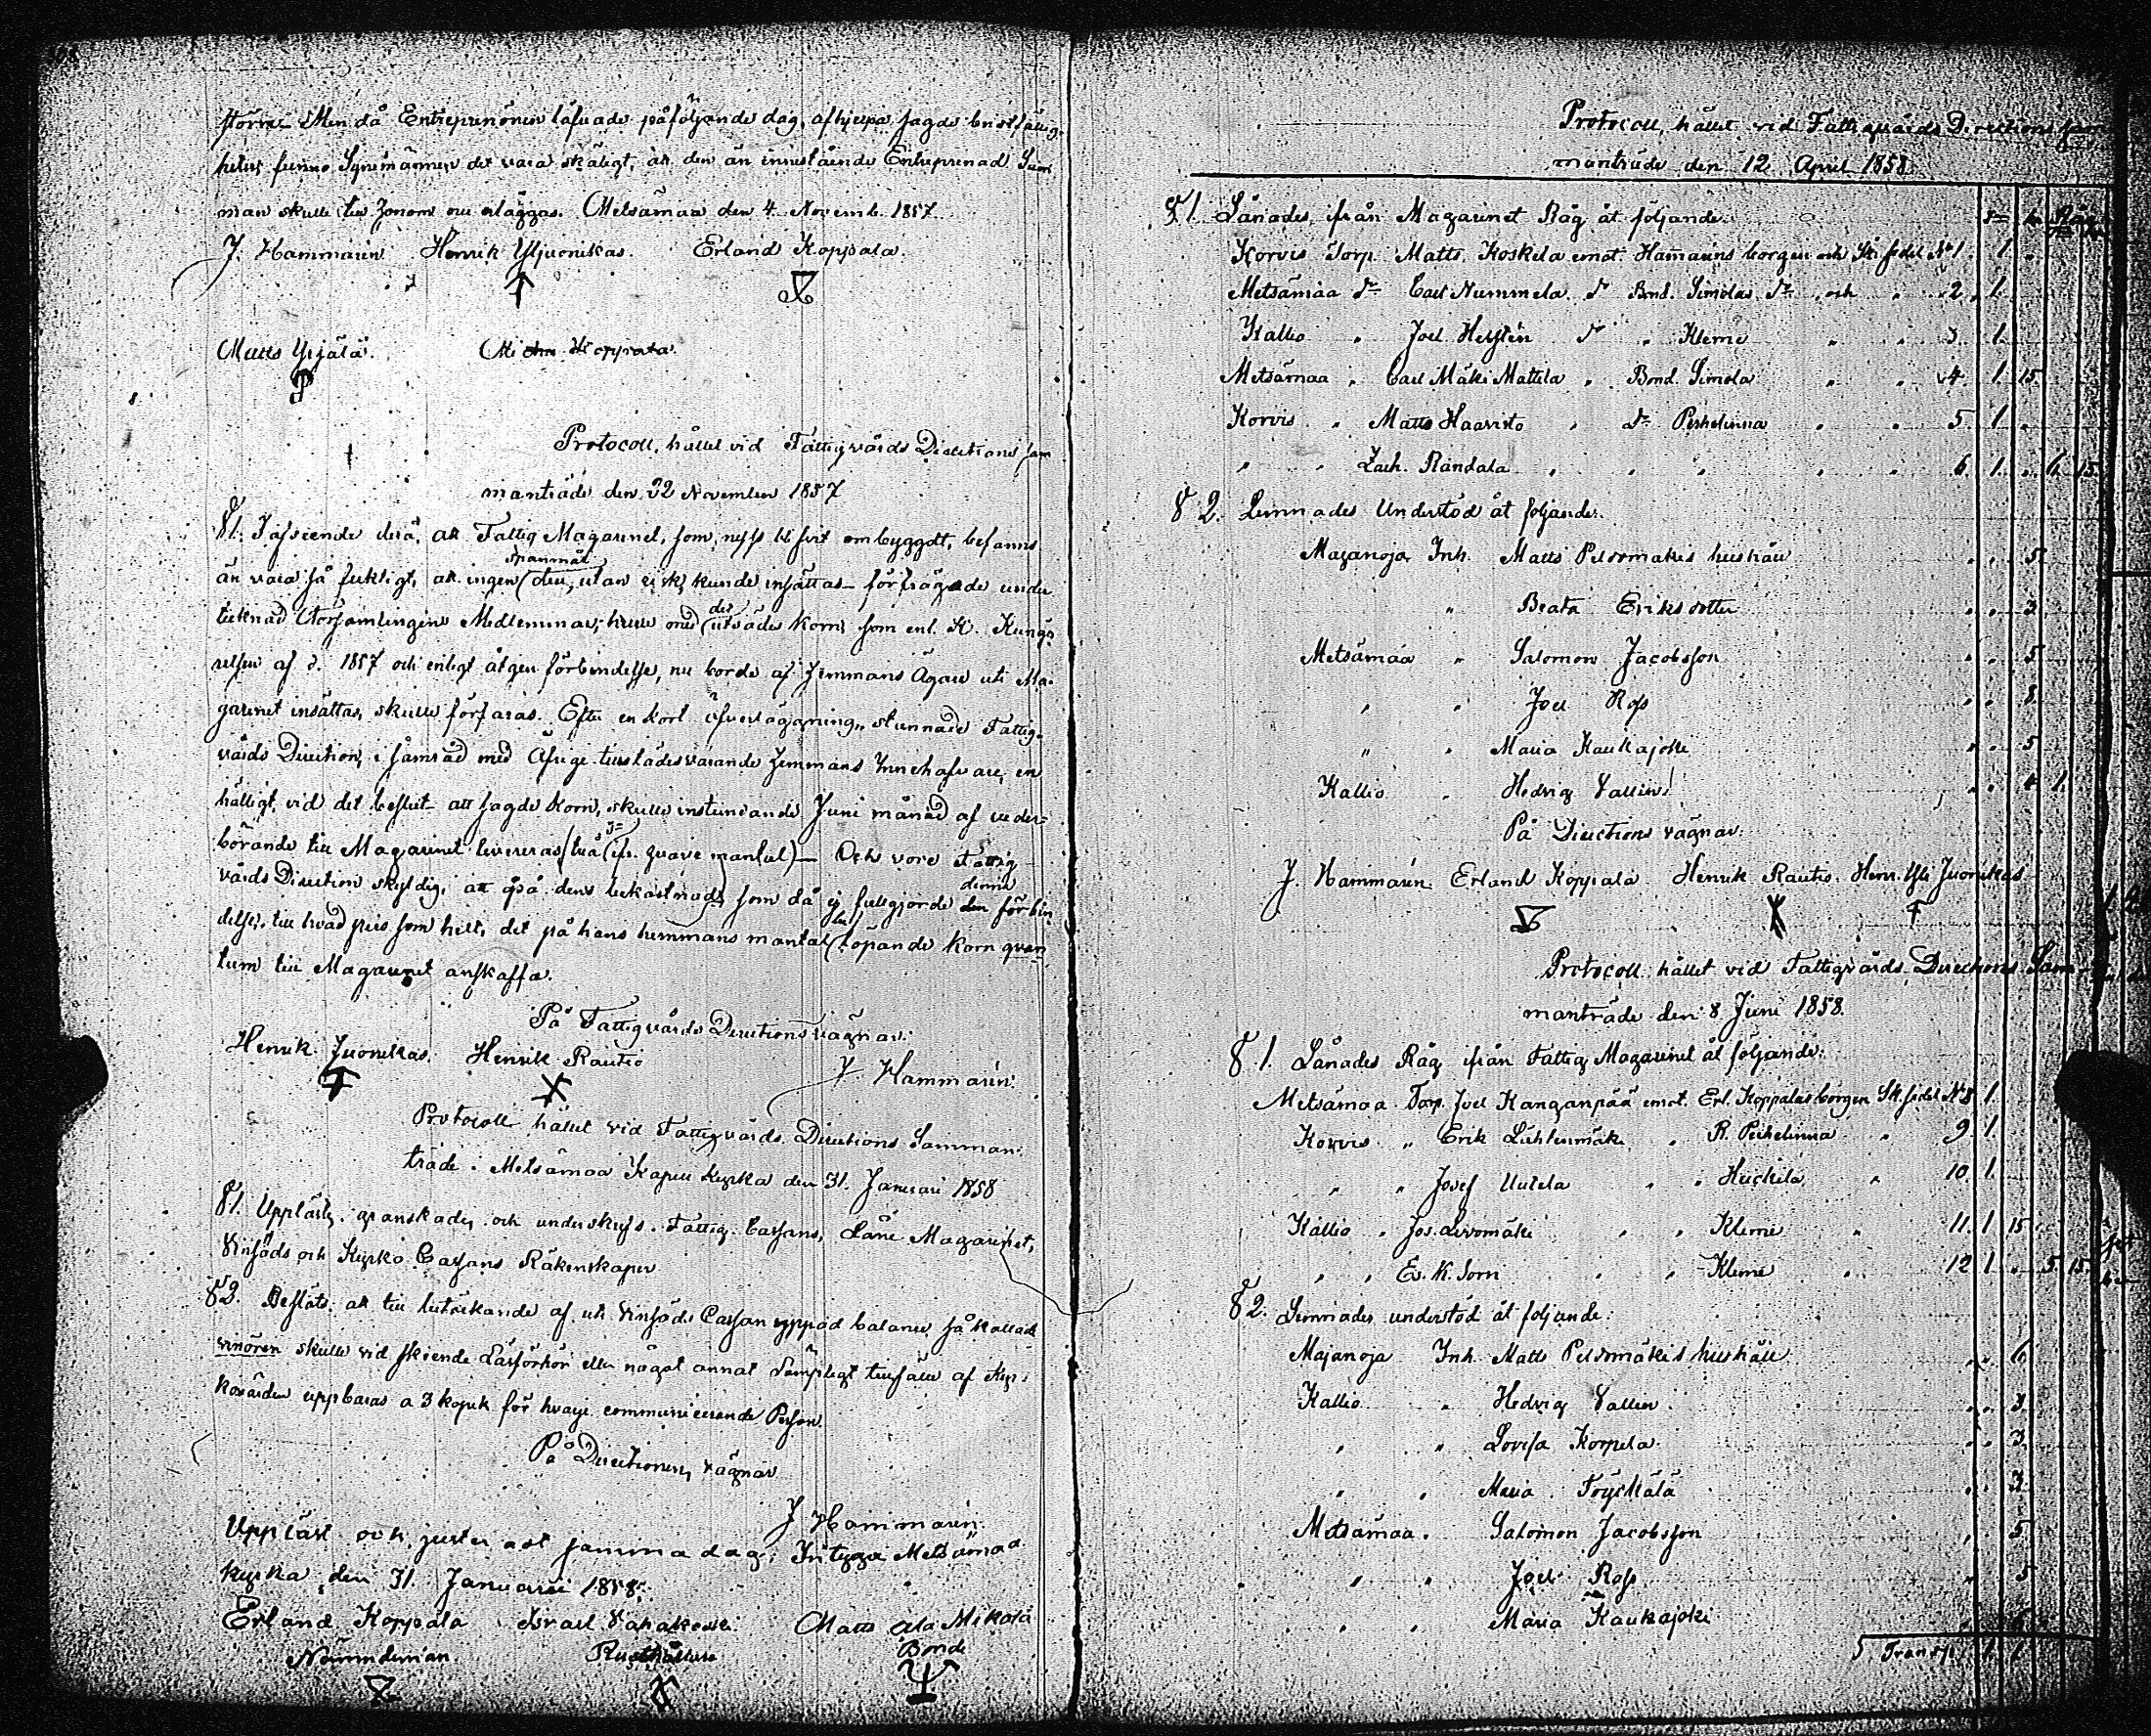 större Men då Entreprenören låfvade påföljande dag, afhjelpa sagde bristfällig-
heter, funno Synemännen det vara skäligt, att den än innestående Entreprenad Sum
man skulle till honom nu erläggas. Metsämaa den 4 Novemb. 1857
J. Hammarén Henrik Yljuonikas. Erland Koppala.
Matts Yrjälä. Koppala
Protocoll, hållet vid Fattigvårds Directions sam
manträde den 22 November 1857
§1. I afseende derå, att Fattig Magazinet, som nyss blifvit ombyggdt, befanns
spanmål
än vara så fuktigt, att ingen den, utan risk, kunde insättas förfrågade under
tecknad Församlingens Medlemmar, huru med det utsädes Korn, som enl. K. Kungö
relsen af d. 1857 och enligt åtgen förbindelse, nu borde af Hemmans Ägare uti Ma-
gazinet insättas, skulle förfaras. Efter en kort öfverläggning, stannade Fattig-
vårds Direction, i samråd med öfrige tillstädesvarande Hemmans Innehafvare, en
hälligt, vid det beslut att sagde Korn, skulle instundande Juni månad af veder-
börande till Magazinet levereras Och vore Fattig
vårds Direction skyldig, att på dens bekostnad, som då ej fullgjorde denna förbin
delse, till hvad pris som helst, det på hans hemmans mantal löpande Korn quan
tum till Magazinet anskaffa.
På Fattigvårds Directions vägnar:
Henrik Juonikas. Henrik Rautio
J. Hammarén.
Protocoll hållet vid Fattigvårds Directions Samman-
träde i Metsämaa Kapell Kyrka den 31. Januari 1858
§1. Upplästes, granskades och underskrefs Fattig Cassans, Låne Magazinet,
Vinsäds och Kyrko Cassans Räkenskaper
§2. Beslöts, att till betäckande af uti Vinsäds Cassan uppåd balance, så kallade
vinören skulle vid skeende Läsförhör eller något annat lämpligt tillfälle af Kyr-
kovärden uppbäras a 3 kopek för hvarje communicerande Person.
På Directionens vägnar
J Hammarén.
Uppläst och justeradt samma dag; Intyga Metsämaa
kyrka den 31. Januari 1858.
Erland Koppala Israel Vahakoski Matts Ala Mikola
Nämndeman Rusthållare Bonde
Protocoll, hållet vid Fattigvårds Directions sam
manträde den 12 April 1858.
§1. Lånades ifrån Magazinet Råg åt följande. Råg
Korvis Torp. Matts Koskela emot Hamaréns borgen och Sk. sedel N:o 1. 1. "
Metsämaa d:o Carl Nummela d:o Bond. Simolas d:o och " 2. 1.
Kallio " Joel Hellstén d:o " Kleme " " 3. 1.
Metsämaa " Carl Mäki Mattila " Bond. Simola " " 4. 1. 15.
Korvis " Matts Haavisto " d:o Perhelinna " " 5. 1.
" " Zach. Randala " " " " " 6. 1. " 6. 15.
§ 2. Lemnades Understöd åt följande.
Majanoja Inh. Matts Peldomäkis hushåll " " 5
" Beata Eriksdotter " " 3.
Metsämaa " Salomon Jacobsson " " 5
" " Joel Ross " " 8.
" " Maria Kaukajoki " " 5
Kallio " Hedvig Vallin " " 4 1.
På Directions vägnar.
J. Hammarén Erland Koppala Henrik Rautio. Henr. Yli Juonikas
Protocoll hållet vid Fattigvårds Directions Sam-
manträde den 8 Juni 1858.
§ 1. Lånades Råg ifrån Fattig Magazinet åt följande.
Metsämaa Torp. Joel Kanganpää emot. Erl. Koppalas borgen Sk. sedel N:o 8 1.
Korvis " Erik Lähtenmäki " R. Perhelinna " 9. 1.
" " Josef Uutela " " Heickilä " 10. 1.
Kallio " Jos. Levomäki " " Kleme " 11. 1 15.
" " Er. K. Sorri " " Kleme " 12 1 " 5. 15.
§ 2. Lemnades understöd åt följande.
Majanoja Inh. Matts Peldomäkis hushåll " " 6
Kallio " Hedvig Vallin " " 3.
" " Lovisa Korpela " " 3.
" " Maria Töyskälä " " 3.
Metsämaa. Salomon Jacobsson " 5
" " Joel Ross " 5
" " Maria Kaukajoki
Transp. 1 1